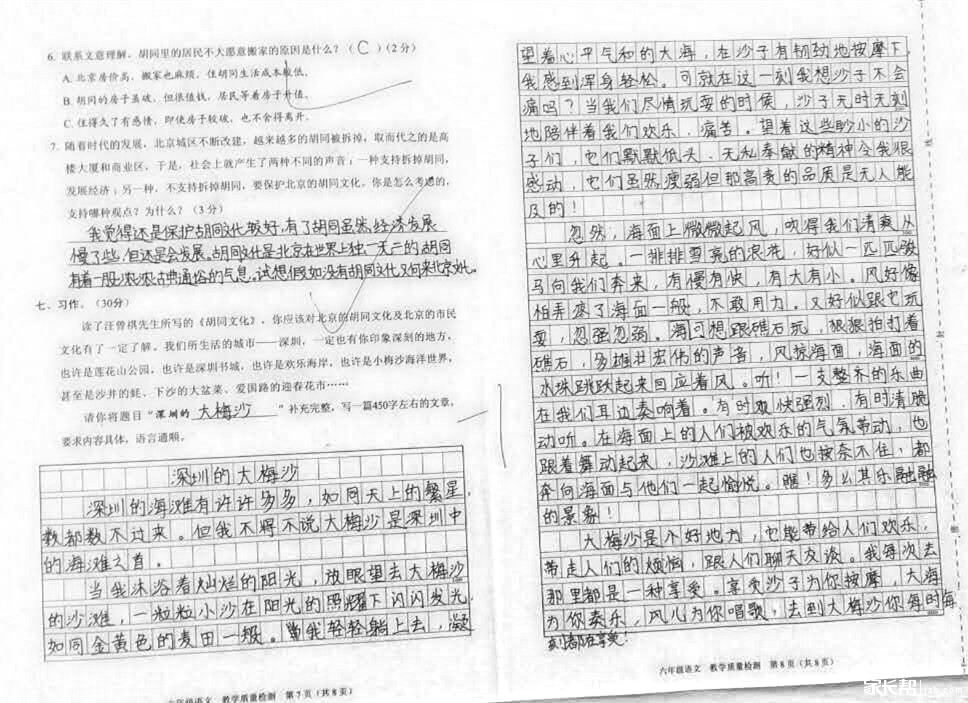 6. 联系文意理解，胡同里的居民不大愿意搬家的原因是什么？（ C ）(2分)
A. 北京房价高，搬家也麻烦，住胡同生活成本较低．
B. 胡同的房子虽破，但很值钱，居民等着房子升值．
C. 住得久了有感情，即使房子较破，也不舍得离开．
7. 随着时代的发展，北京城区不断改建，越来越多的胡同被拆掉，取而代之的是高
楼大厦和商业区，于是，社会上就产生了两种不同的声音：一种支持拆掉胡同，
发展经济；另一种，不支持拆掉胡同，要保护北京的胡同文化。你是怎么考虑的，
支持哪种观点？为什么？（3 分）
我觉得还是保护胡同文化较好，有了胡同虽然经济发展
慢了些，但还是会发展。胡同文化是北京在世界上独一无二的，胡同
有着一股浓浓古典通俗的气息。试想假如没有胡同文化又何来北京文化。
七、习作．（30分）
读了汪曾祺先生所写的《胡同文化》，你应该对北京的胡同文化及北京的市民
文化有了一定了解。我们所生活的城市——深圳，一定也有你印象深刻的地方，
也许是莲花山公园，也许是深圳书城，也许是欢乐海岸，也许是小梅沙海洋世界，
甚至是沙井的蚝、下沙的大盆菜、爱国路的迎春花市……
请你将题目“深圳的 大梅沙 ”补充完整，写一篇450字左右的文章，
要求内容具体，语言通顺。
深圳的大梅沙
深圳的海滩有许许多多，如同天上的繁星，
数都数不过来。但我不得不说大梅沙是深圳中
的海滩之首。
当我沐浴着灿烂的阳光，放眼望去大梅沙
的沙滩，一粒粒小沙在阳光的照耀下闪闪发光，
如同金黄色的麦田一般。当我轻轻躺上去，凝
六年级语文 教学质量检测 第 7 页（共 8 页）
望着心平气和的大海，在沙子有韧劲地按摩下，
我感到浑身轻松。可就在这一刻我想沙子不会
痛吗？当我们尽情玩耍的时候，沙子无时无刻
地陪伴着我们欢乐、痛苦。望着这些眇小的沙
子们，它们默默低头、无私奉献的精神令我很
感动，它们虽然瘦弱但那高亮的品质是无人能
及的！
忽然，海面上微微起风，吹得我们清爽从
心里升起。一排排雪亮的浪花，好似一匹匹骏
马向我们奔来，有慢有快，有大有小。风好像
怕弄疼了海面一般，不敢用力。又好似跟它玩
耍，忽强忽弱。海习想跟礁石玩，狠狠拍打着
礁石，多雄壮宏伟的声音，风掠海面，海面的
水珠跳跃起来回应着风。听！一支整齐的乐曲
在我们耳边奏响着。有时欢快强烈，有时清脆
动听。在海面上的人们被欢乐的气氛带动，也
跟着舞动起来，沙滩上的人们也按奈不住，都
奔向海面与他们一起愉悦。瞧！多么其乐融融
的景象！
大梅沙是个好地方，它能带给人们欢乐，
带走人们的烦恼，跟人们聊天友谈。我每次去
那里都是一种享受。享受沙子为你按摩，大海
为你奏乐，风儿为你唱歌，去到大梅沙你每时每
刻都在享受！
六年级语文 教学质量检测 第 8 页（共 8 页）
家长帮